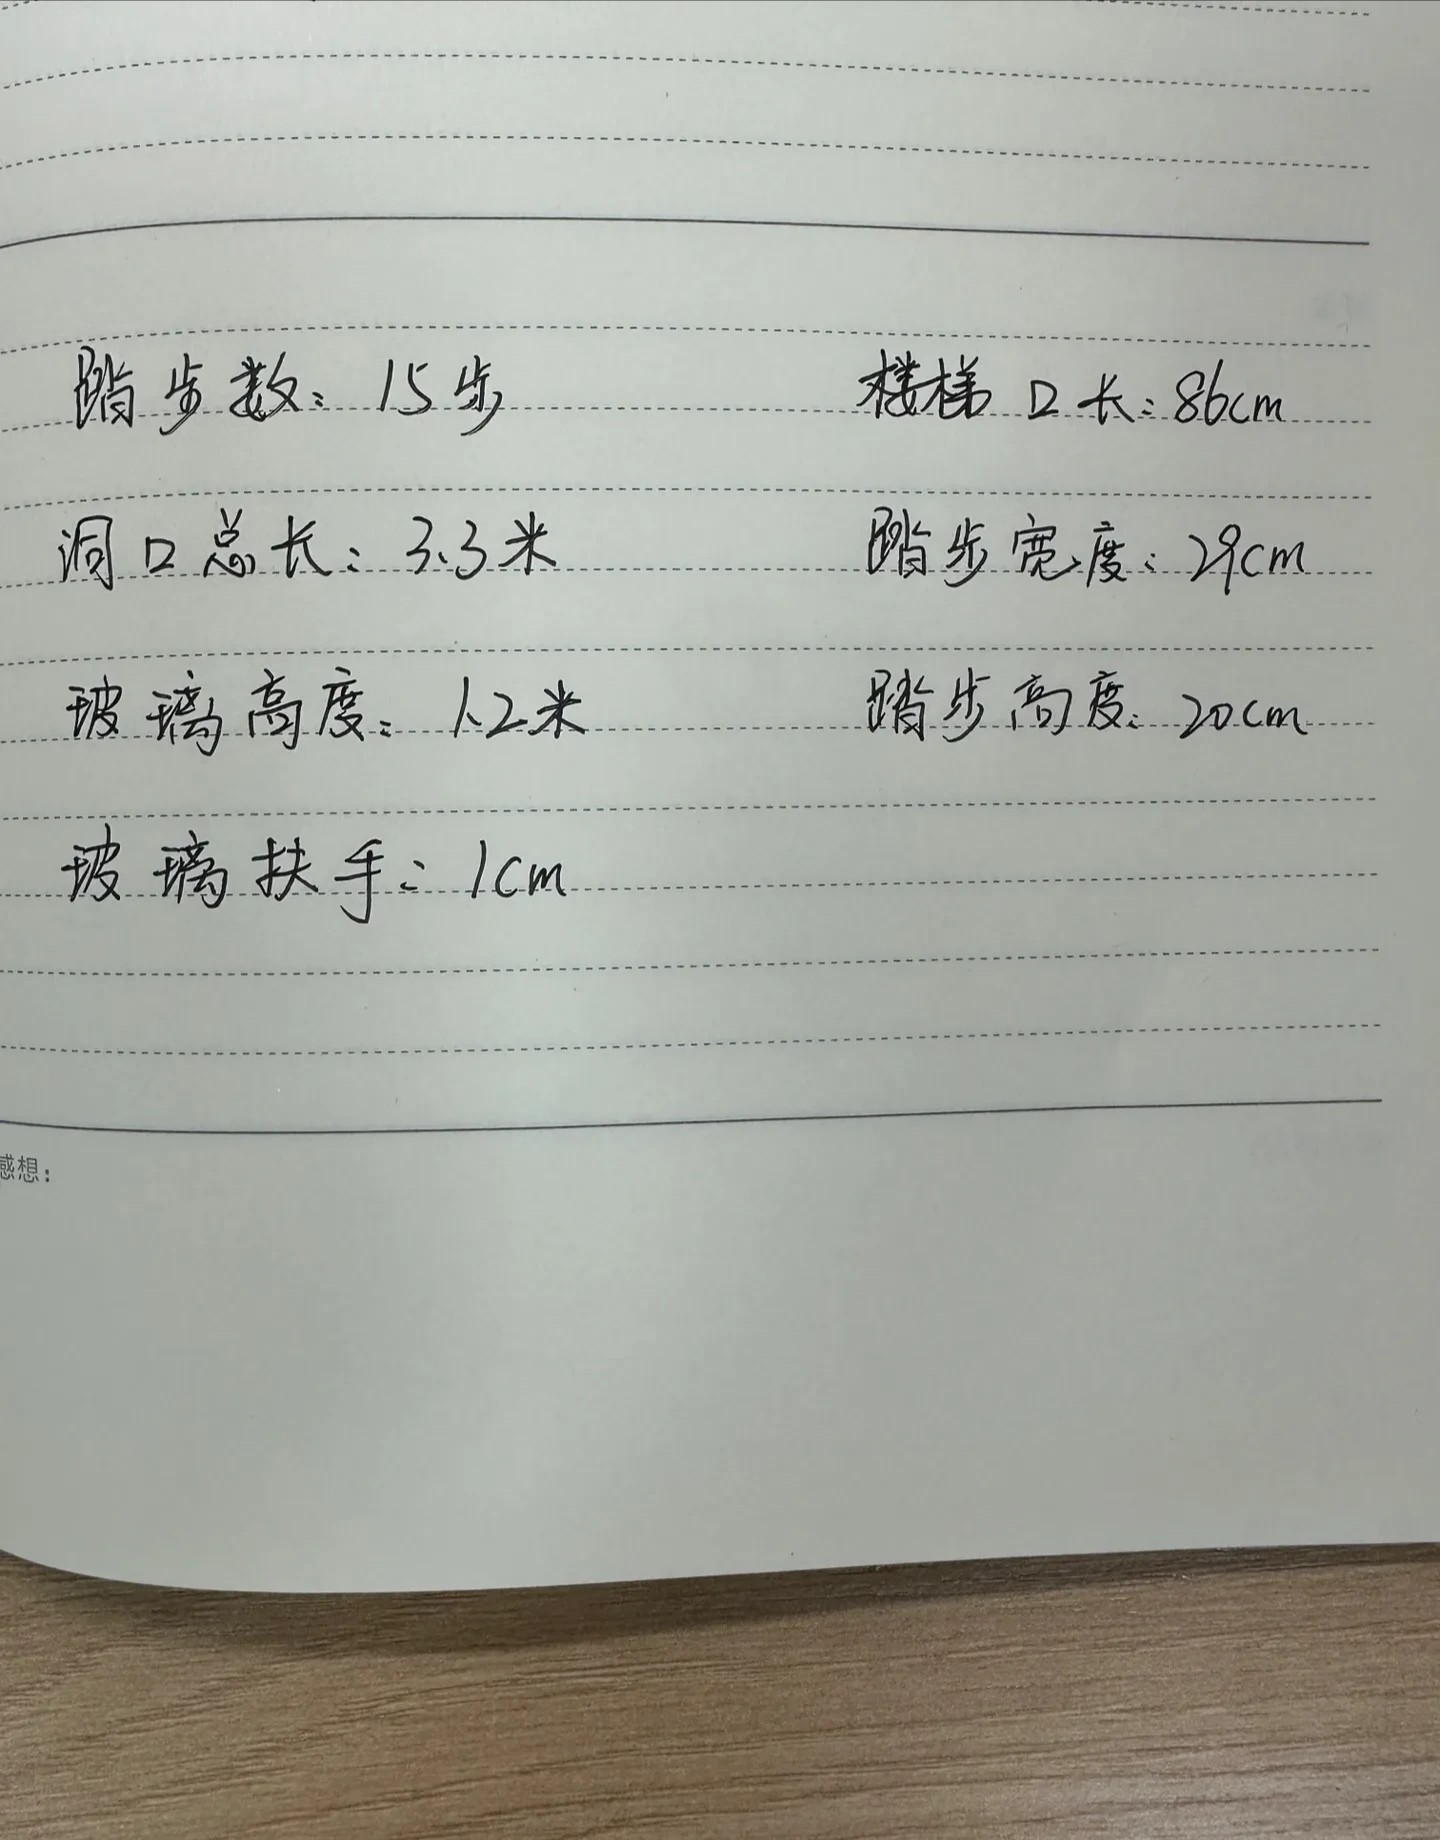 踏步数：15步 楼梯口长：86cm
洞口总长：3.3米 踏步宽度：29cm
玻璃高度：1.2米 踏步高度：20cm
玻璃扶手：1cm
感想：